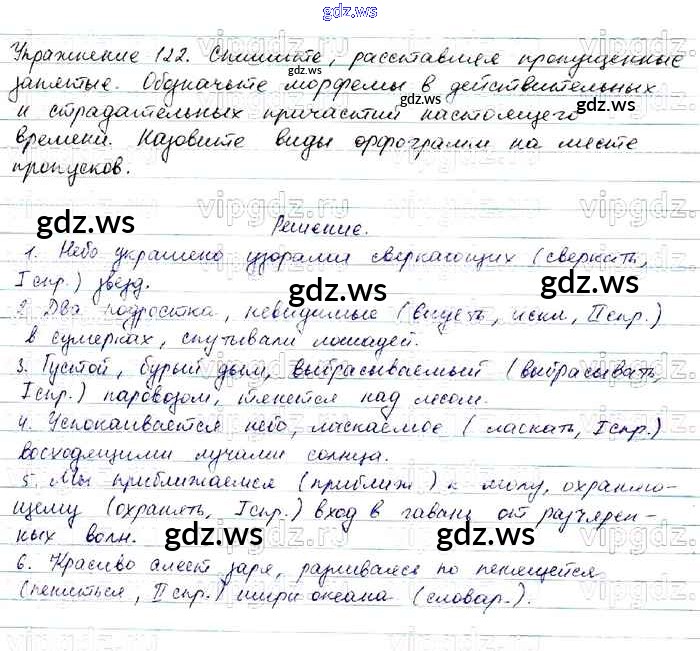 gdz.ws
Упражнение 122. Спишите, расставляя пропущенные
запятые. Обозначьте морфемы в действительных
и страдательных причастий настоящего
времени. Назовите виды орфограмм на месте
пропусков.
Решение.
1. Небо украшено узорами сверкающих (сверкать,
I спр.) звёзд.
2. Два подростка, невидимые (видеть, искл, II спр.)
в сумерках, спутывали лошадей.
3. Густой, бурый дым, выбрасываемый (выбрасывать,
I спр.) паровозом, тянется над лесом.
4. Успокаивается небо, ласкаемое (ласкать, I спр.)
восходящими лучами солнца.
5. Мы приближаемся (приближ) к молу, охраняю-
щему (охранять, I спр.) вход в гавань от разъярен-
ных волн.
6. Красиво алеет заря, разливаясь по пенящейся
(пениться, II спр.) шири океана (словар.).